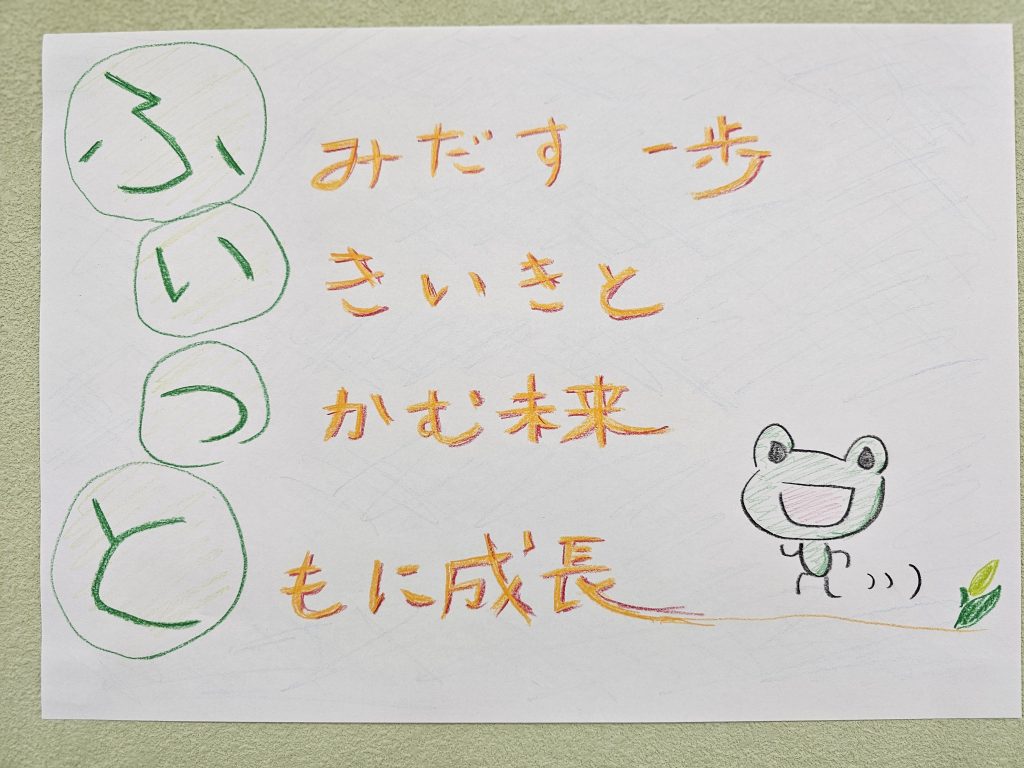 ふみだす 一歩
いきいきと
つかむ未来
ともに成長